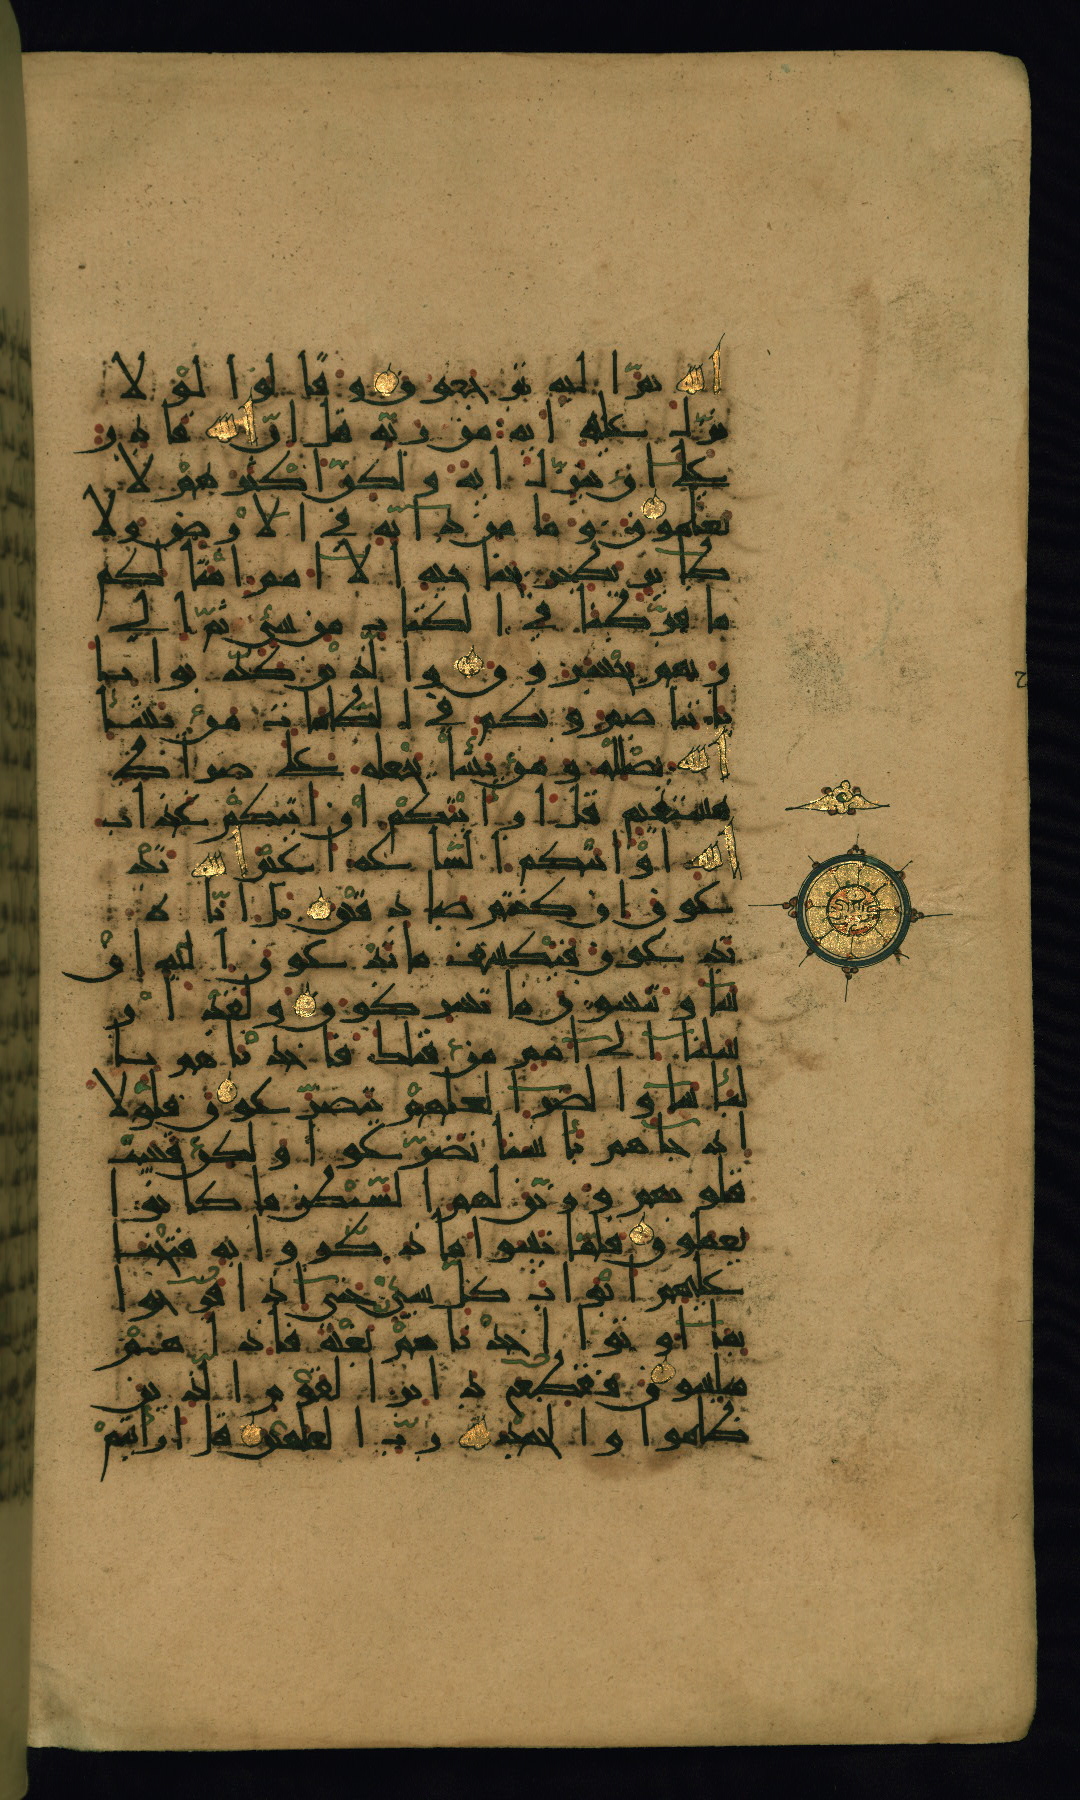 الله ثم اليه يرجعون وقالوا لولا
نزل عليه اية من ربه قل ان الله قادر
على ان ينزل اية ولكن اكثرهم لا
يعلمون وما من دابة في الارض ولا
طائر يطير بجناحيه الا امم امثالكم
ما فرطنا في الكتاب من شيء ثم الى
ربهم يحشرون والذين كذبوا با
ياتنا صم وبكم في الظلمات من يشأ
الله يضلله ومن يشأ يجعله على صراط
مستقيم قل ارأيتكم ان اتيكم عذاب
الله او اتتكم الساعة اغير الله تد
عون ان كنتم صادقين بل ايا ه
تدعون فيكشف ما تدعون اليه ان
شاء وتنسون ما تشركون ولقد ار
سلنا الى امم من قبلك فاخذناهم با
لبأساء والضراء لعلهم يتضرعون فلولا
اذ جاءهم بأسنا تضرعوا ولكن قست
قلوبهم وزين لهم الشيطن ما كانوا
يعملون فلما نسوا ما ذكروا به فتحنا
عليهم ابواب كل شيء حتى اذا فرحوا
بما اوتوا اخذناهم بغتة فاذا هم
مبلسون فقطع دابر القوم الذين
ظلموا والحمد لله رب العلمين قل ارأيتم